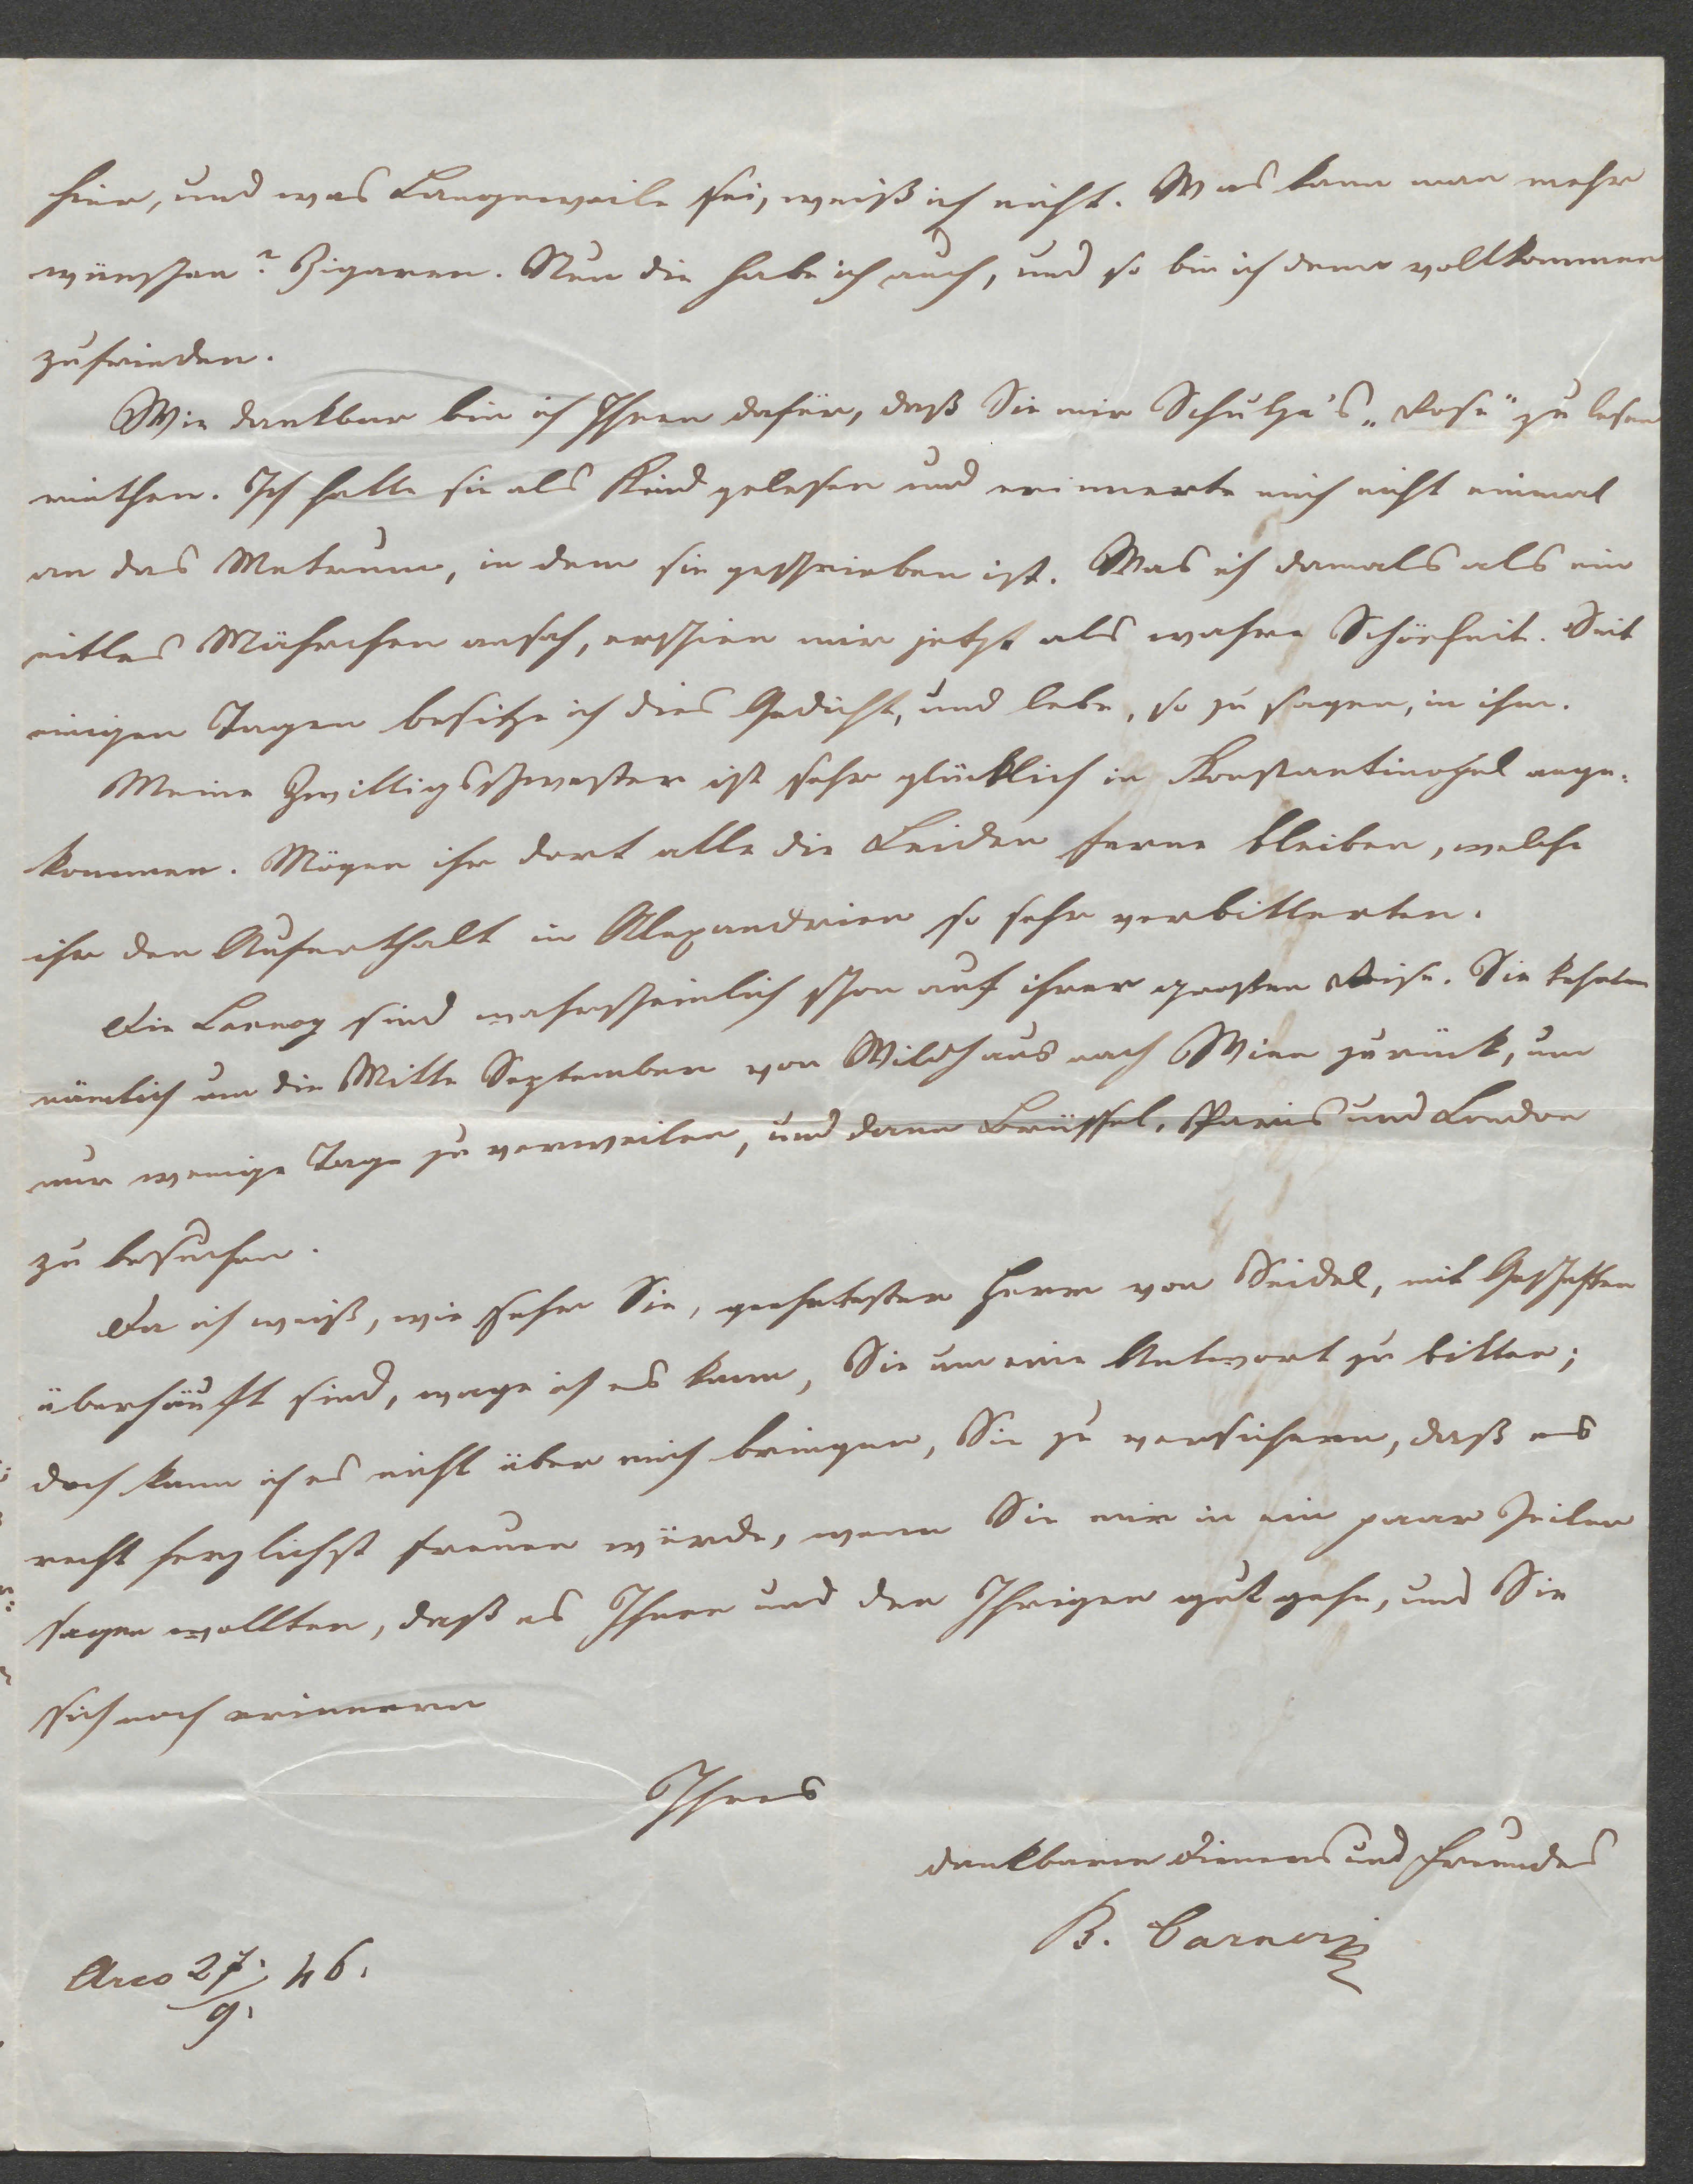 hier, und was Langeweile sei, weiß ich nicht. Was kann man mehr
wünschen? Zigarren. Nun die habe ich auch, und so bin ich denn vollkommen
zufrieden.
Wie dankbar bin ich Ihnen dafür, daß Sie mir Schulze's „Rose" zu lesen
riethen. Ich hatte sie als Kind gelesen und erinnerte mich nicht einmal
an das Metrum, in dem sie geschrieben ist. Was ich damals als ein
eitles Mährchen ansah, erschien mir jetzt als wahre Schönheit. Seit
einigen Tagen besitze ich dies Gedicht, und lebe, so zu sagen, in ihm.
Meine Zwilligsschwester ist sehr glücklich in Konstantinopel ange-
kommen. Mögen ihr dort alle die Leiden ferne bleiben, welche
ihr den Aufenthalt in Alexandrien so sehr verbitterten.
Die sind wahrscheinlich schon auf ihrer großen Reise. Sie kehrten
nämlich um die Mitte September von Wildhaus nach Wien zurück, um
nur wenige Tage zu verweilen, und dann Brüssel, Paris und London
zu besuchen.
Da ich weiß, wie sehr Sie, geehrtester Herr von Seidel, mit Geschäften
überhäuft sind, wage ich es kaum, Sie um eine Antwort zu bitten;
doch kann ich es nicht über mich bringen, Sie zu versichern, daß es
recht herzlichst freuen würde, wenn Sie mir in ein paar Zeilen
sagen wollten, daß es Ihnen und den Ihrigen gut gehe, und Sie
sich noch erinnern
Ihres
dankbaren Dieners und Freundes
B. Carneri
Arco 27./9. 46.